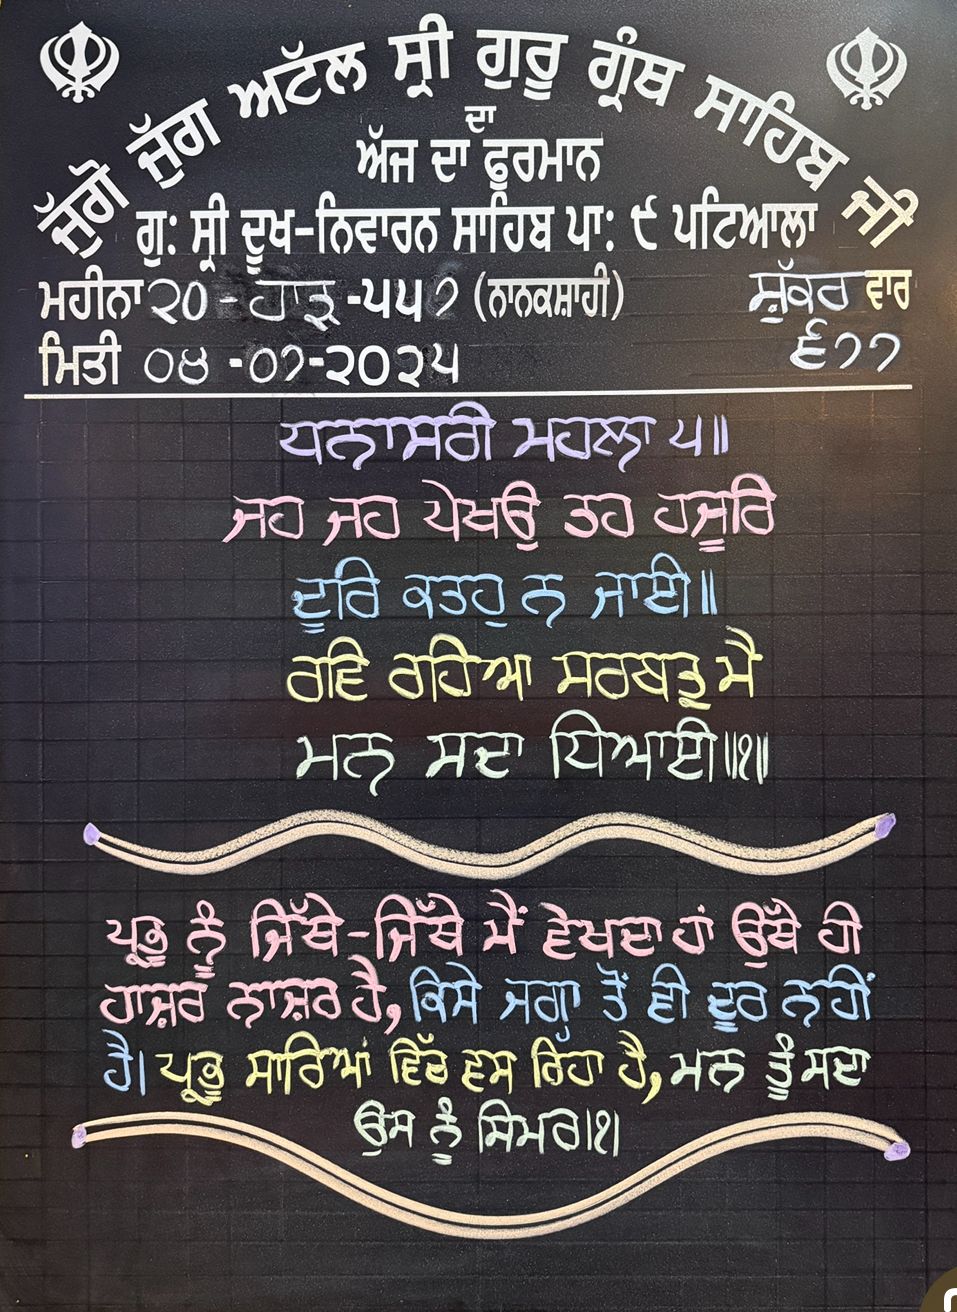 ਜੁੱਗੋ ਜੁੱਗ ਅਟੱਲ ਸ੍ਰੀ ਗੁਰੂ ਗ੍ਰੰਥ ਸਾਹਿਬ ਜੀ
ਦਾ
ਅੱਜ ਦਾ ਫੁਰਮਾਨ
ਗੁ: ਸ੍ਰੀ ਦੂਖ-ਨਿਵਾਰਨ ਸਾਹਿਬ ਪਾ: ੯ ਪਟਿਆਲਾ
ਮਹੀਨਾ ੨੦ - ਹਾੜ -੫੫੭ (ਨਾਨਕਸ਼ਾਹੀ) ਸ਼ੁੱਕਰ ਵਾਰ
ਮਿਤੀ ੦੪ -੦੭-੨੦੨੫ ੬੭੭
ਧਨਾਸਰੀ ਮਹਲਾ ੫॥
ਜਹ ਜਹ ਪੇਖਉ ਤਹ ਹਜੂਰਿ
ਦੂਰਿ ਕਤਹੁ ਨ ਜਾਈ॥
ਰਵਿ ਰਹਿਆ ਸਰਬਤ੍ਰ ਮੈ
ਮਨ ਸਦਾ ਧਿਆਈ॥੧॥
ਪ੍ਰਭੂ ਨੂੰ ਜਿੱਥੇ-ਜਿੱਥੇ ਮੈਂ ਵੇਖਦਾ ਹਾਂ ਉੱਥੇ ਹੀ
ਹਾਜ਼ਰ ਨਾਜ਼ਰ ਹੈ, ਕਿਸੇ ਜਗ੍ਹਾ ਤੋਂ ਵੀ ਦੂਰ ਨਹੀਂ
ਹੈ। ਪ੍ਰਭੂ ਸਾਰਿਆਂ ਵਿੱਚ ਵਸ ਰਿਹਾ ਹੈ, ਮਨ ਤੂੰ ਸਦਾ
ਉਸ ਨੂੰ ਸਿਮਰ।੧।